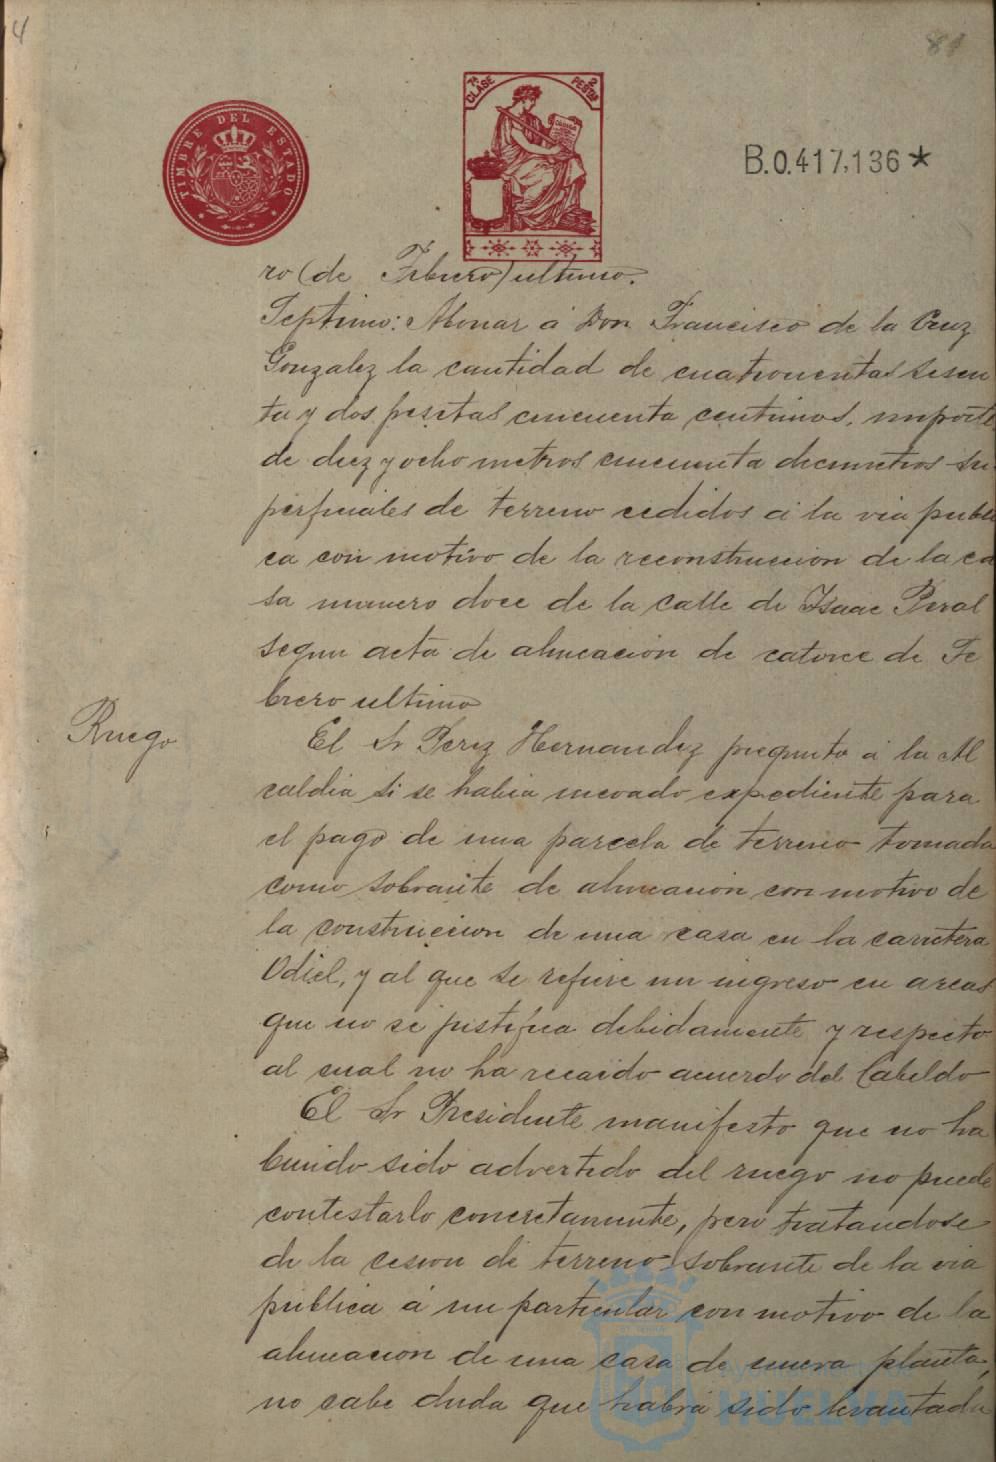 4
81
TIMBRE DEL ESTADO
7ª CLASE 2 PESTAS
B.0.417,136 *
ro (de Febrero) ultimo.
Septimo: Abonar á Don Francisco de la Cruz
Gonzalez la cantidad de cuatrocientas sesen
ta y dos pesetas cincuenta centimos, importe
de diez y ocho metros cincuenta decimetros su
perficiales de terreno cedidos á la via publi
ca con motivo de la reconstruccion de la ca
sa numero doce de la calle de Isaac Peral
segun acta de alineación de catorce de Fe
brero ultimo
Ruego
El Sr Perez Hernandez pregunto á la Al
caldia si se habia incoado expediente para
el pago de una parcela de terreno tomada
como sobrante de alineación con motivo de
la construccion de una casa en la carretera
Odiel, y al que se refiere un ingreso en arcas
que no se justifica debidamente y respecto
al cual no ha recaido acuerdo del Cabildo
El Sr Presidente manifesto que no ha
biendo sido advertido del ruego no puede
contestarlo concretamente, pero tratandose
de la cesion de terreno sobrante de la via
publica á un particular con motivo de la
alineacion de una casa de nueva planta,
no cabe duda que habrá sido levantada
Ayuntamiento de
HUELVA